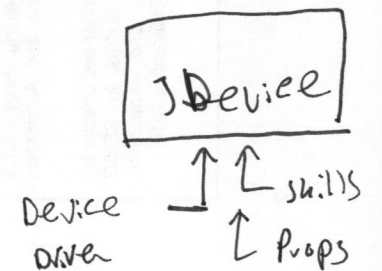 JDevice
skills
Device
Driver
Props